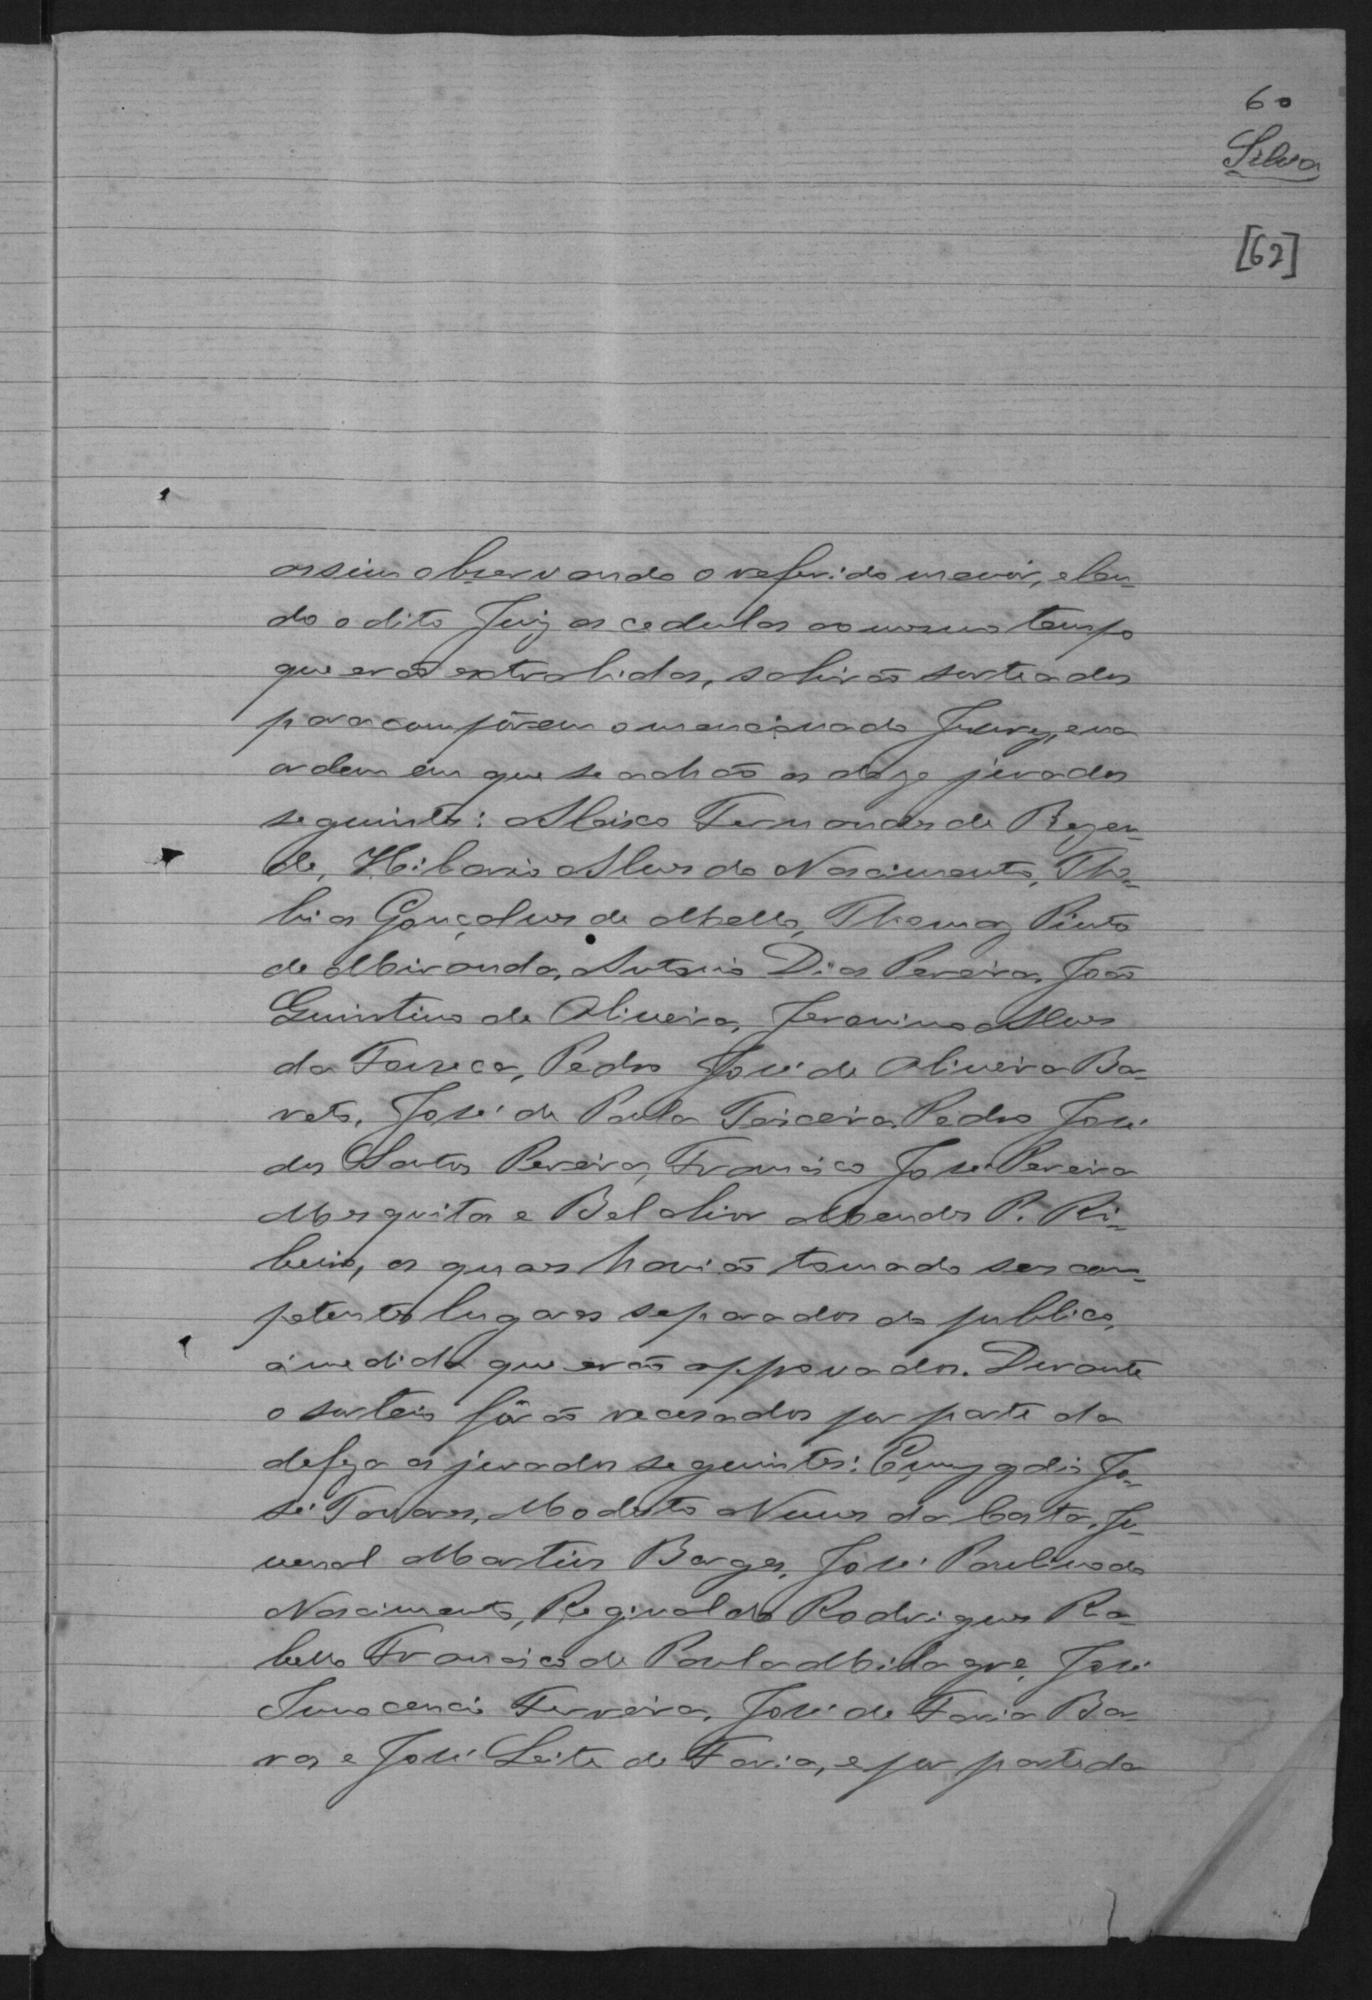 60
Silva
[62]
assim observando o referido menór, e len-
do o dito Juiz as cedulas ao mesmo tempo
que erão extrahidas, sahirão sorteados
para compôrem o mencionado Jury, e na
ordem em que se achão os doze jurados
seguintes: Aleixo Fernandes de Rezen-
de, Hilario Alves do Nascimento, Tho-
bias Gonçalves de Mello, Thomaz Pinto
de Miranda, Antonio Dias Pereira, João
Quintino de Oliveira, Jeronimo Alves
da Fonseca, Pedro José de Oliveira Ba-
reto, José de Paula Teixeira, Pedro José
dos Santos Pereira, Francisco José Pereira
Mesquita e Belchior Mendes P. Ri-
beiro, os quaes havião tomado seos com-
petentes lugares separados do publico,
á medida que erão approvados. Durante
o sorteio fôrão recusados por parte da
defeza os jurados seguintes: Emygdio Jo-
sé Tavares, Modesto Nunes da Costa, Ju-
venal Martins Borges, José Paulino do
Nascimento, Reginaldo Rodrigues Ra-
bello Francisco de Paula Milagre, José
Innocencio Ferreira, José de Faria Ba-
ros e José Leite de Faria, e por parte da